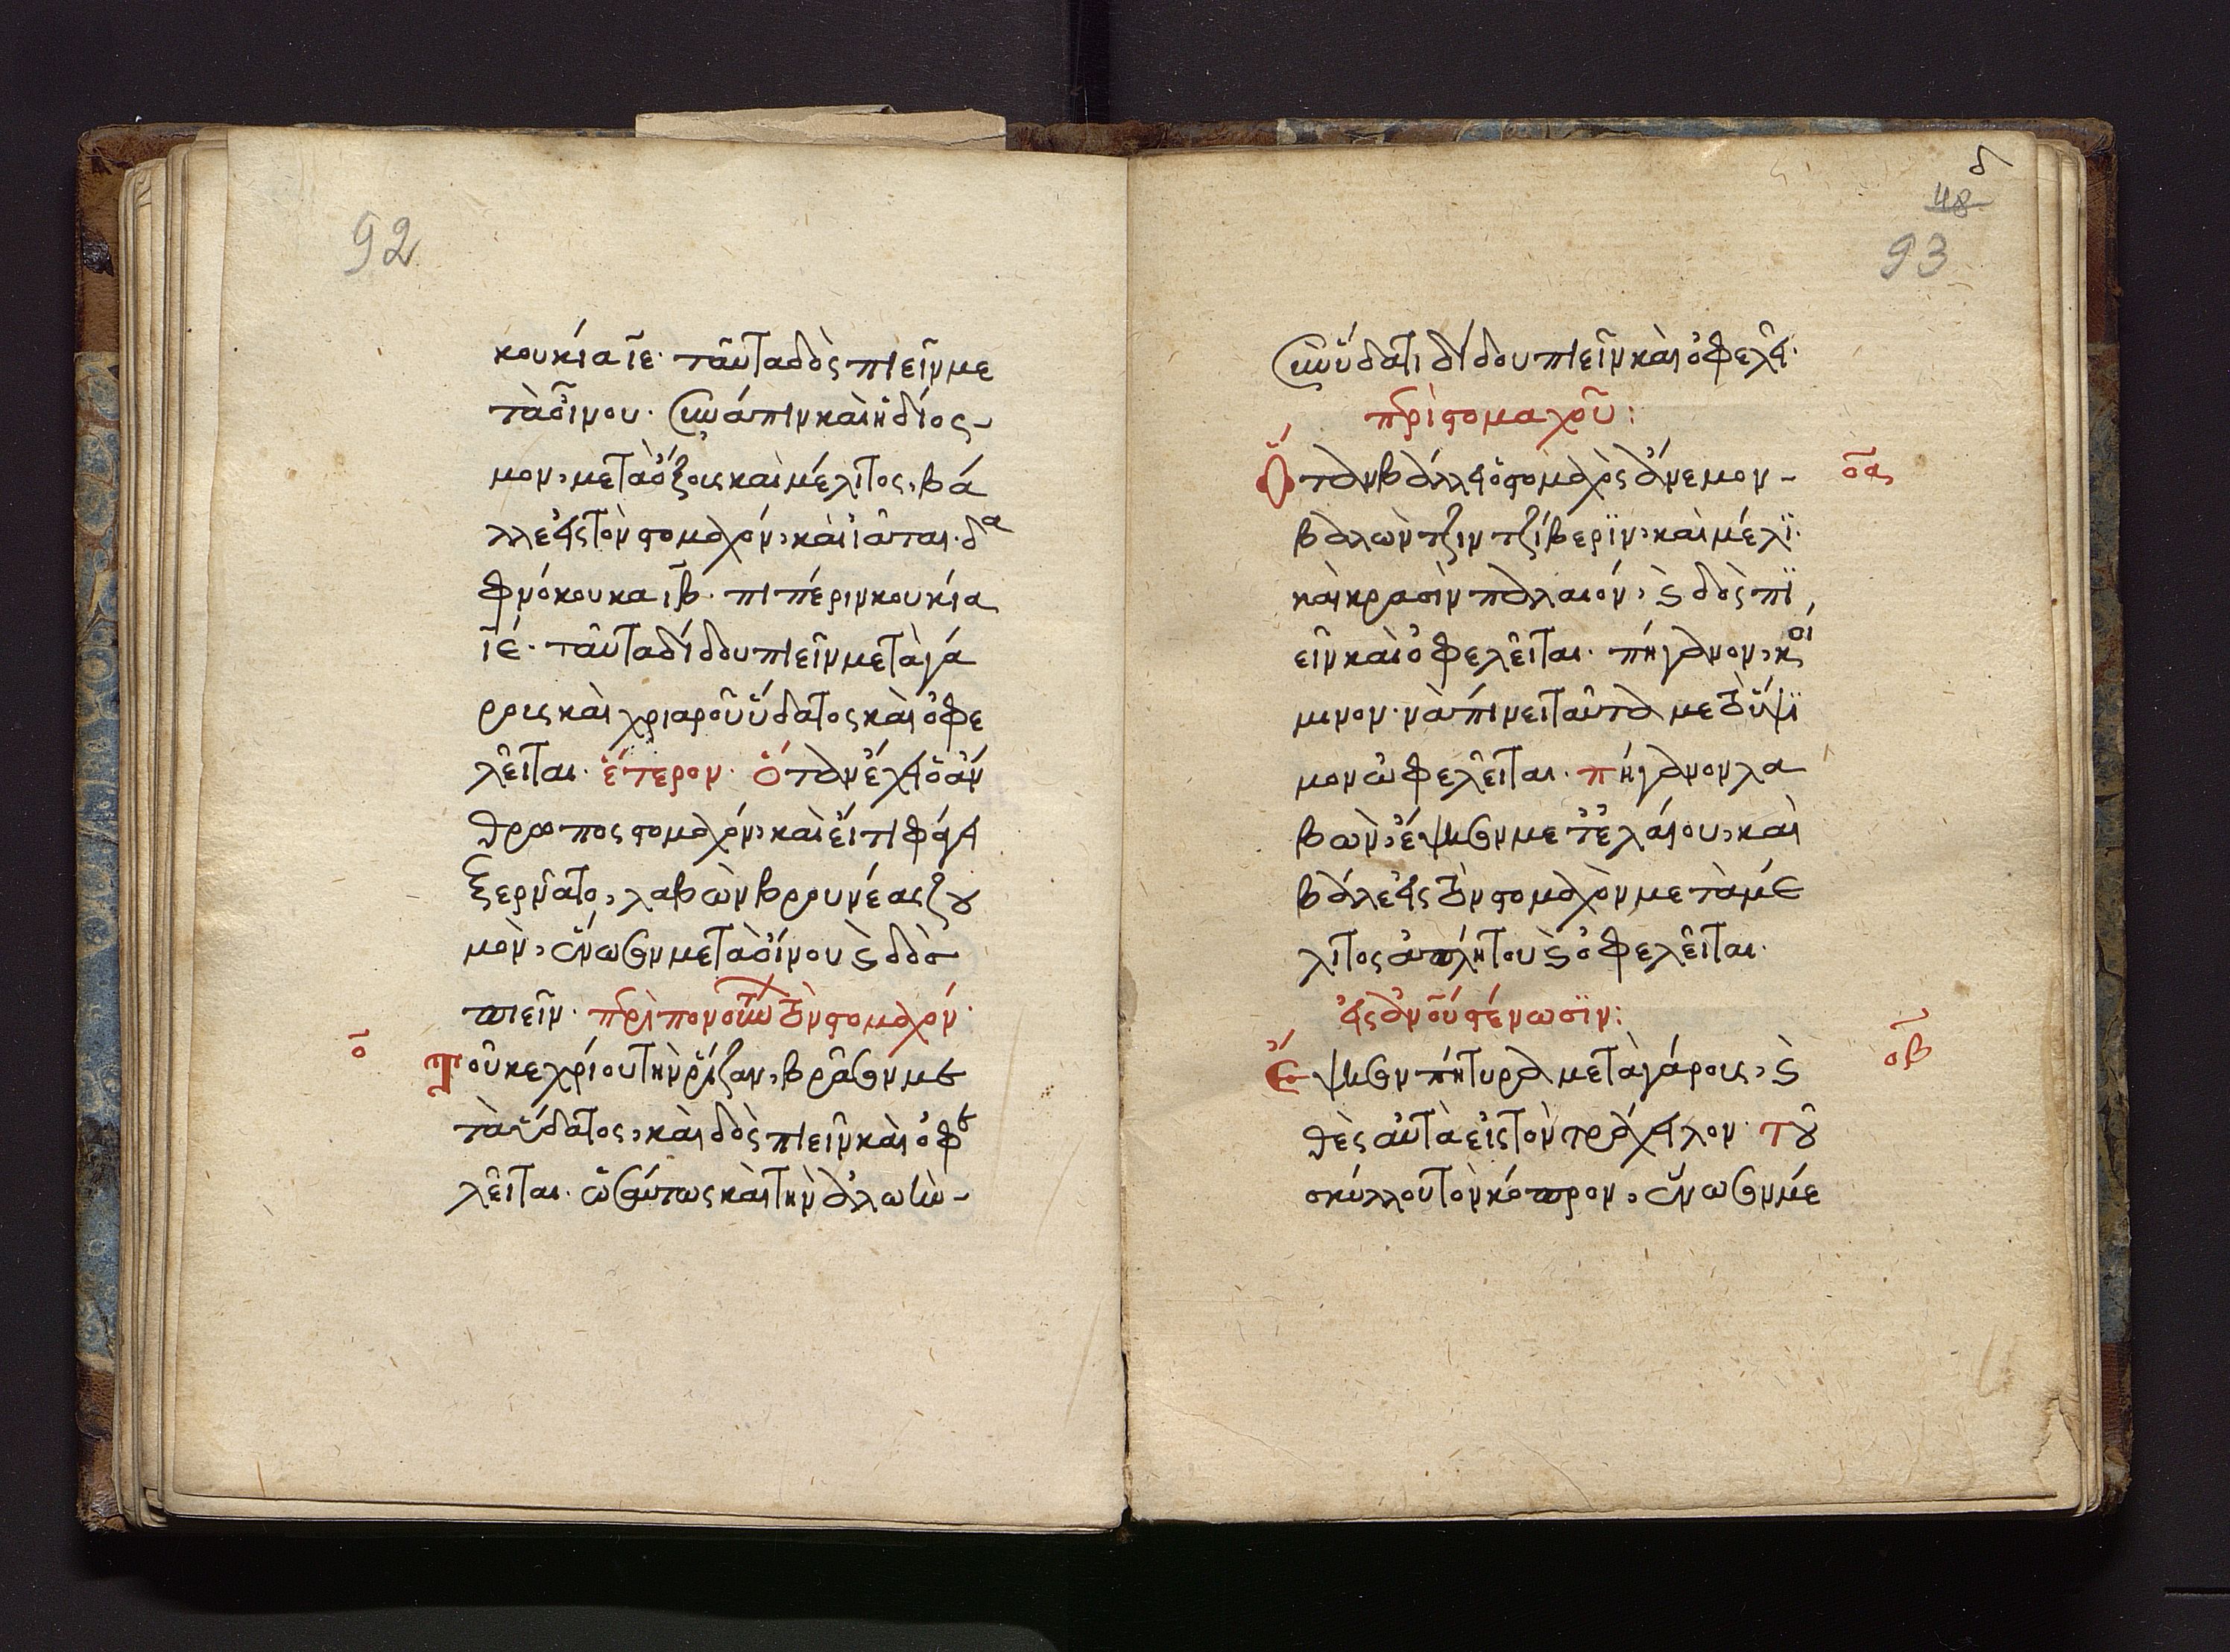 92
κουκία ιε. ταῦτα δὸς πιεῖν με
τὰ οἴνου. σινάπιν καὶ ἡδίοσ-
μον, μετὰ ὄξους καὶ μέλιτος, βά
λλε εἰς τὸν στομαχόν, καὶ ἰᾶται. δα
φνόκουκα ιβ. πιπέριν κουκία
ιε. ταῦτα δίδου πιεῖν μετὰ γά
ρους καὶ χλιαροῦ ὕδατος καὶ ὀφε
λεῖται. ἕτερον. ὅταν ἔχει ὁ ἄν
θρωπος στομαχόν, καὶ εἴ τι φάγει
ξερνᾶ το, λαβὼν βρυνέας ζου
μὸν, ἕνωσον μετὰ οἴνου καὶ δὸσ
πιεῖν. περὶ πονοῦντων τὸν στομαχόν.
ο
Τοῦ κεχρίου τὴν ρίζαν, βράσον με
τὰ ὕδατος, καὶ δὸς πιεῖν καὶ ὀφε
λεῖται. ὡσαύτως καὶ τὴν ἀλωὴν-
δ
48
93
σὺν ὕδατι δίδου πιεῖν καὶ ὀφελεῖ.
περὶ στομαχοῦ:
οα
Ὅταν βάλλει ὁ στόμαχος ἄνεμον-
βαλὼν τζιντζίβεριν, καὶ μέλι.
καὶ κρασὶν παλλαιόν, καὶ δὸς πι
εῖν καὶ ὀφελεῖται. πήγανον, κοί
μινον. νὰ πίνει ταῦτα με τὸ ὕψι
μον ὠφελεῖται. πήγανον λα
βὼν, ἕψησον με τὸ ἐλαίου, καὶ
βάλε εἰς τὸν στομαχὸν μετὰ μέ
λιτος ἀπλήτου καὶ ὀφελεῖται.
εἰς ἀνοῦ στένωσιν:
οβ
Ἕψησον πήτυρα μετὰ γάρους, καὶ
θὲς αὐτὰ εἰς τὸν τράχειλον. τοῦ
σκύλλου τὸν κόπρον, ἕνωσον μέ